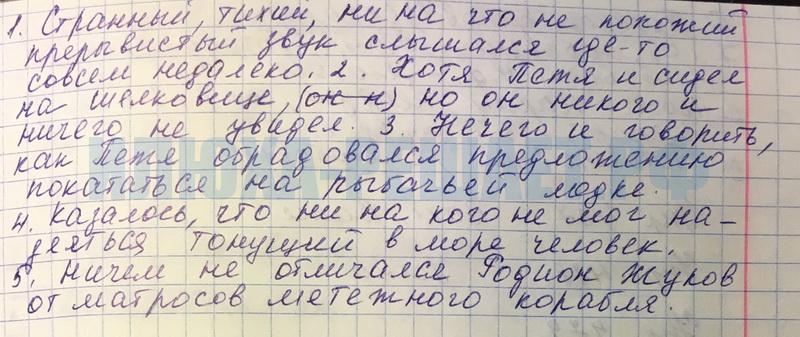 1. Странный, тихий, ни на что не похожий
прерывистый звук слышался где-то
совсем недалеко. 2. Хотя Петя и сидел
на шелковице, (он н) но он никого и
ничего не увидел. 3. Нечего и говорить,
как Петя обрадовался предложению
покататься на рыбачьей лодке.
4. Казалось, что ни на кого не мог на-
деяться тонущий в море человек.
5. Ничем не отличался Родион Жуков
от матросов метежного корабля.